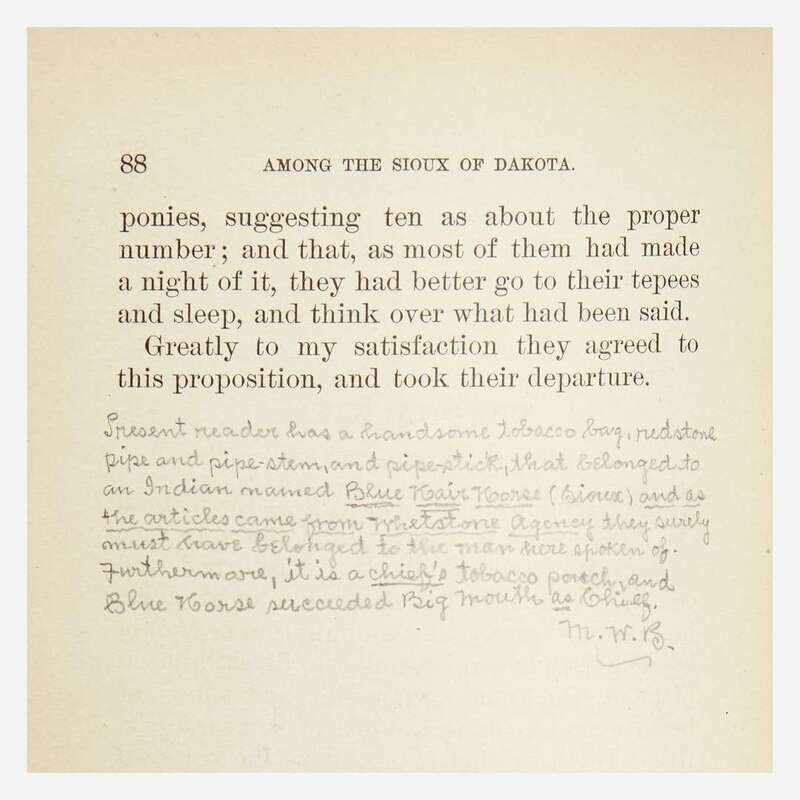 88 AMONG THE SIOUX OF DAKOTA.
ponies, suggesting ten as about the proper
number; and that, as most of them had made
a night of it, they had better go to their tepees
and sleep, and think over what had been said.
Greatly to my satisfaction they agreed to
this proposition, and took their departure.
Present reader has a handsome tobacco bag, redstone
pipe and pipe-stem, and pipe-stick, that belonged to
an Indian named Blue Hair Horse (Sioux) and as
the articles came from Whetstone Agency they surely
must have belonged to the man here spoken of.
Furthermore, it is a chief's tobacco pouch, and
Blue Horse succeeded Big Mouth as Chief.
M. W. B.